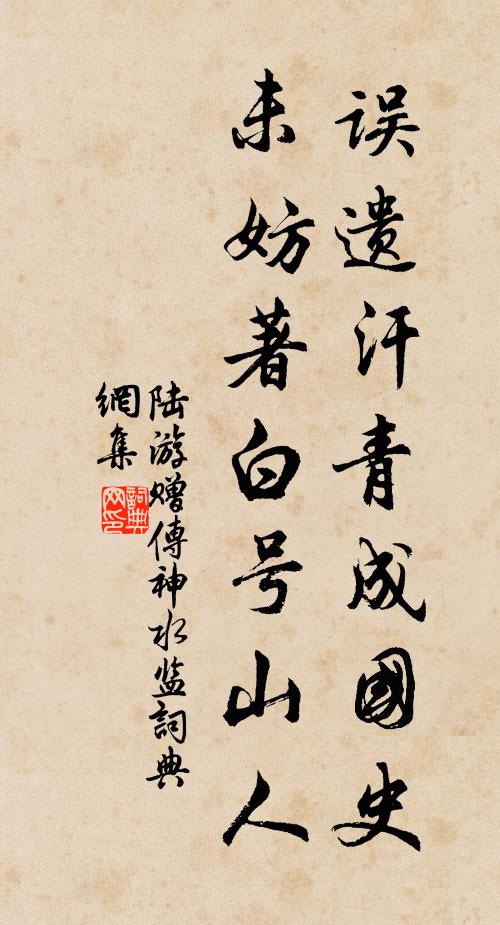 误遗汗青成國史
未妨著白号山人
陆游赠傳神水监詞典
網集
詞典网印